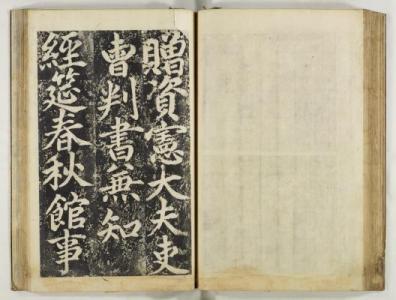 贈資憲大夫吏
曹判書兼知
經筵春秋館事